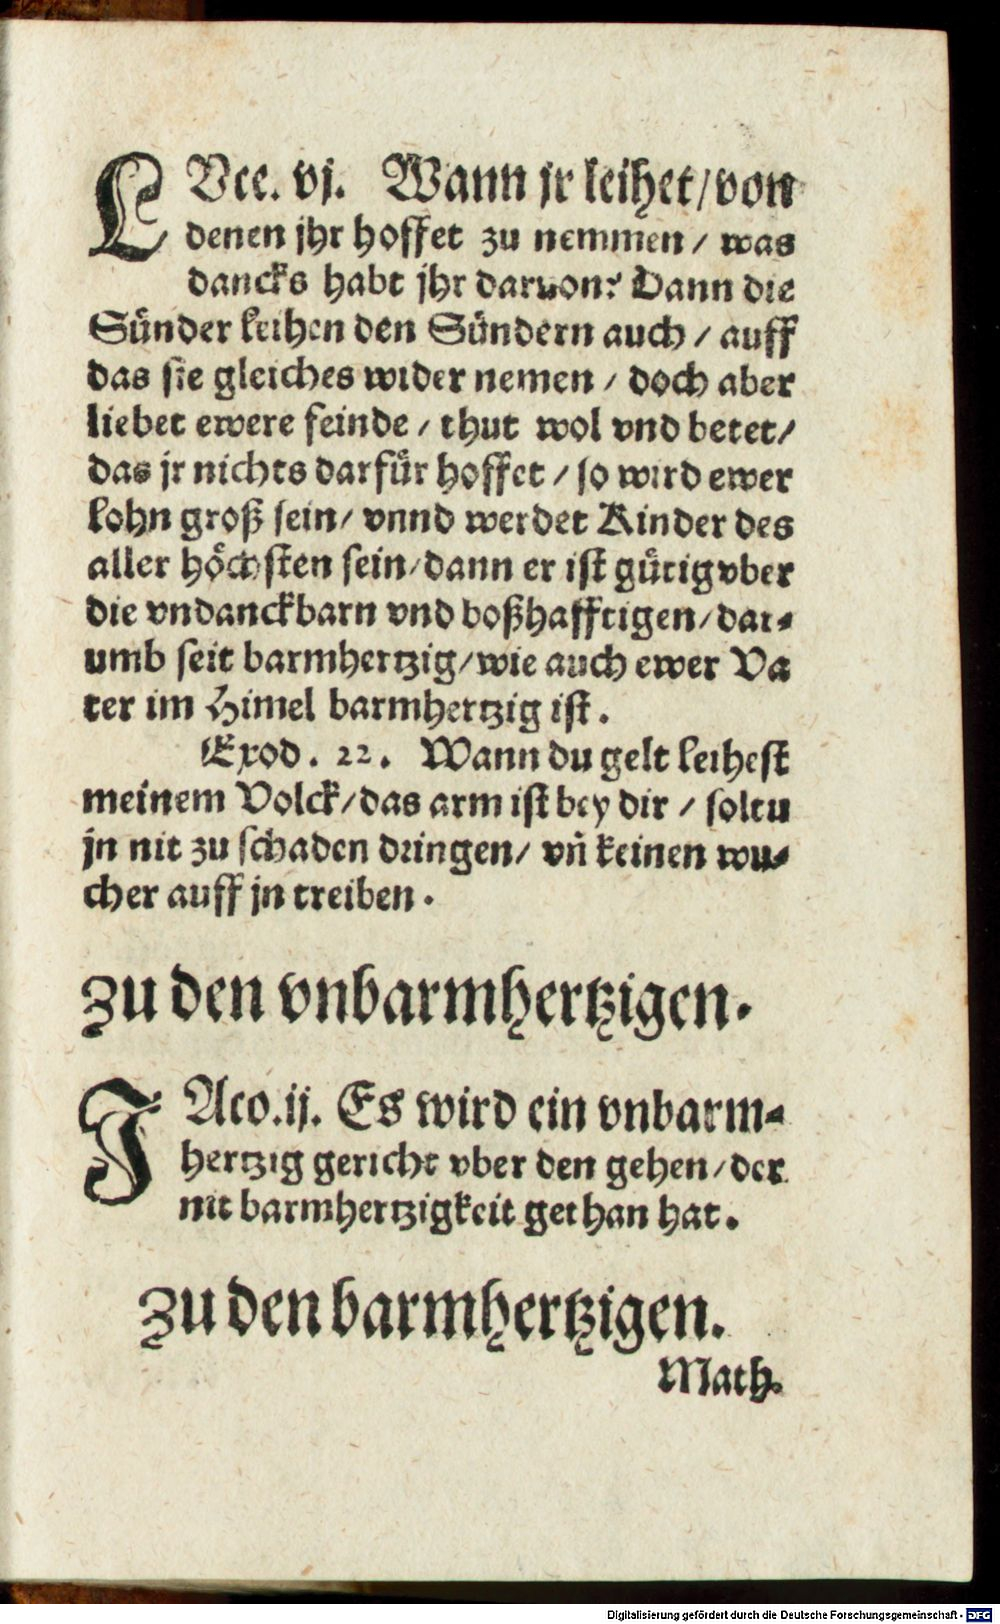 LVce. vj. Wann jr leihet/von
denen jhr hoffet zu nemmen / was
dancks habt jhr daruon? Dann die
Sünder leihen den Sündern auch / auff
das sie gleiches wider nemen / doch aber
liebet ewere feinde / thut wol vnd betet/
das jr nichts darfür hoffet / so wird ewer
lohn groß sein/ vnnd werdet Kinder des
aller höchsten sein/dann er ist gütig vber
die vndanckbarn vnd boßhafftigen/dar-
umb seit barmhertzig/wie auch ewer Va
ter im Himel barmhertzig ist.
Exod. 22. Wann du gelt leihest
meinem Volck/das arm ist bey dir / soltu
jn nit zu schaden dringen/ vn̄ keinen wu-
cher auff jn treiben.
Zu den vnbarmhertzigen.
JAco.ij. Es wird ein vnbarm-
hertzig gericht vber den gehen/der
nit barmhertzigkeit gethan hat.
Zu den barmhertzigen.
Math.
Digitalisierung gefördert durch die Deutsche Forschungsgemeinschaft - DFG